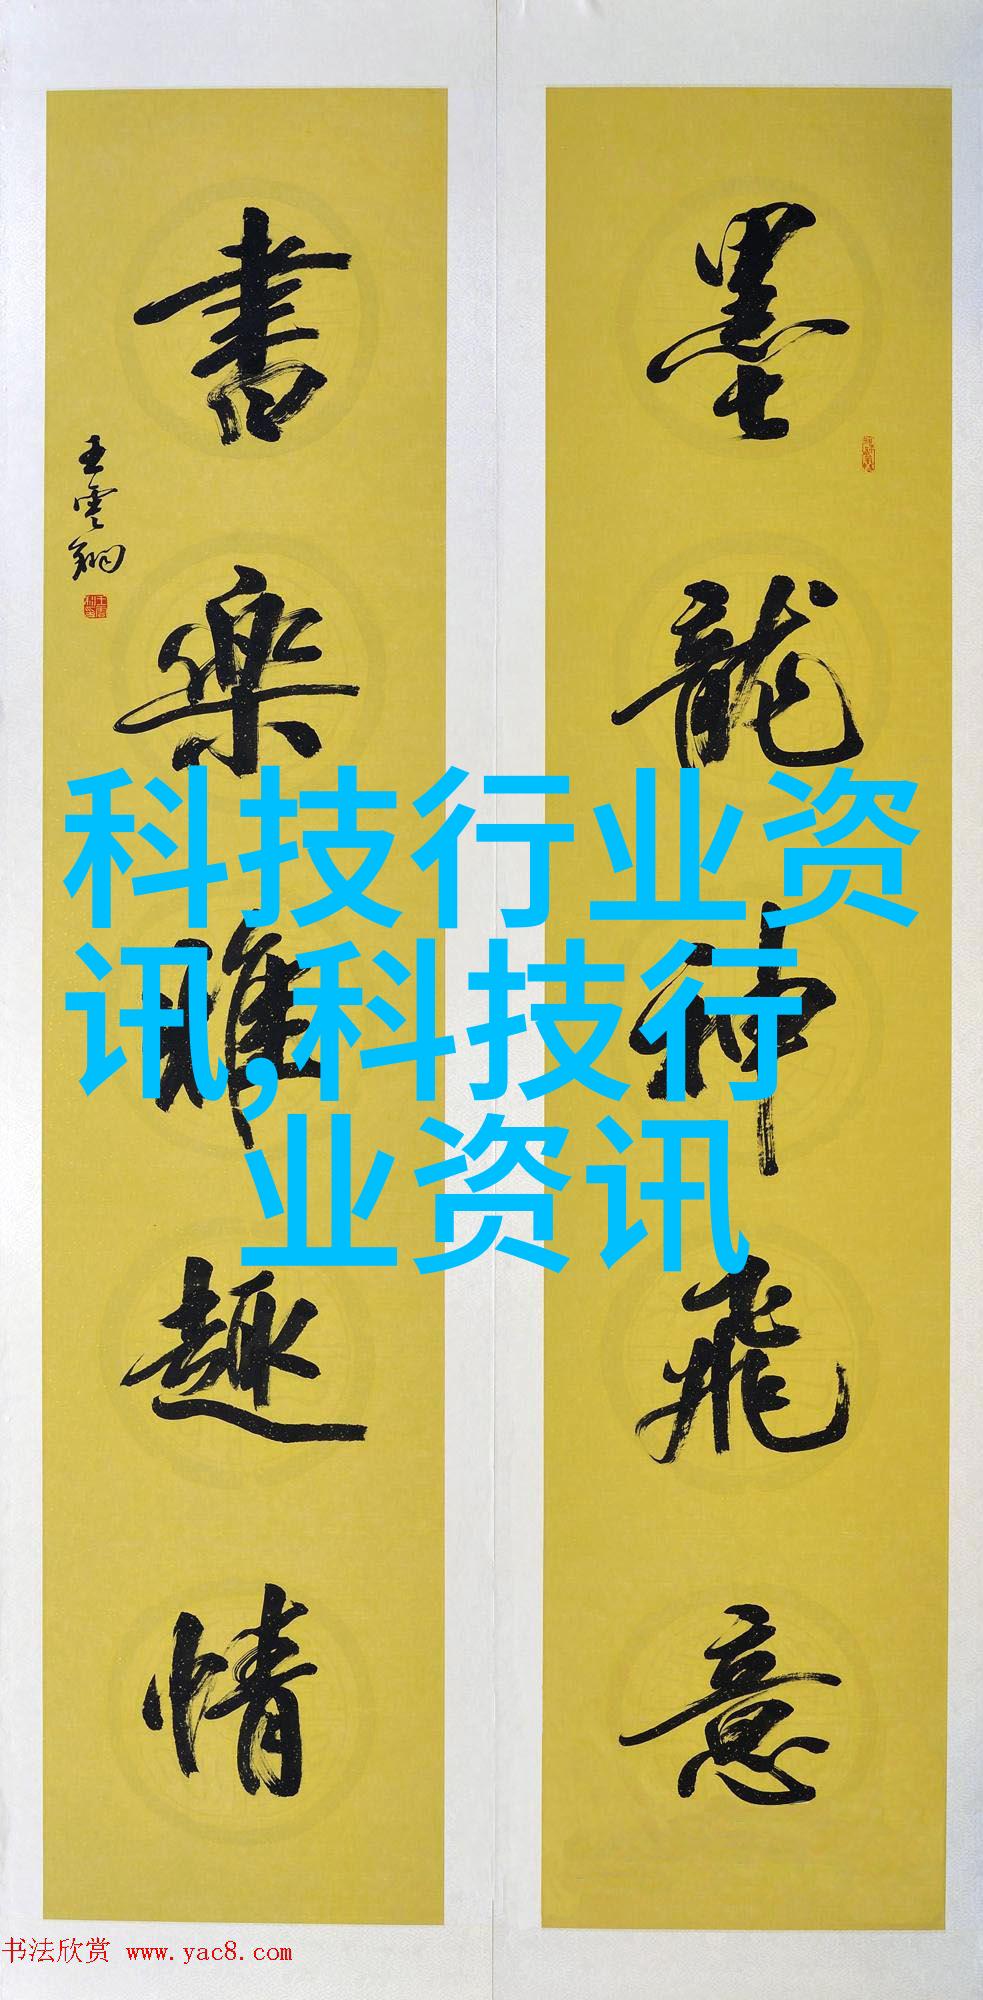 墨龍神飛意
書樂唯趣情
王雲翔
科技行业资
讯,科技行
业资讯
书法欣赏 www.yac8.com